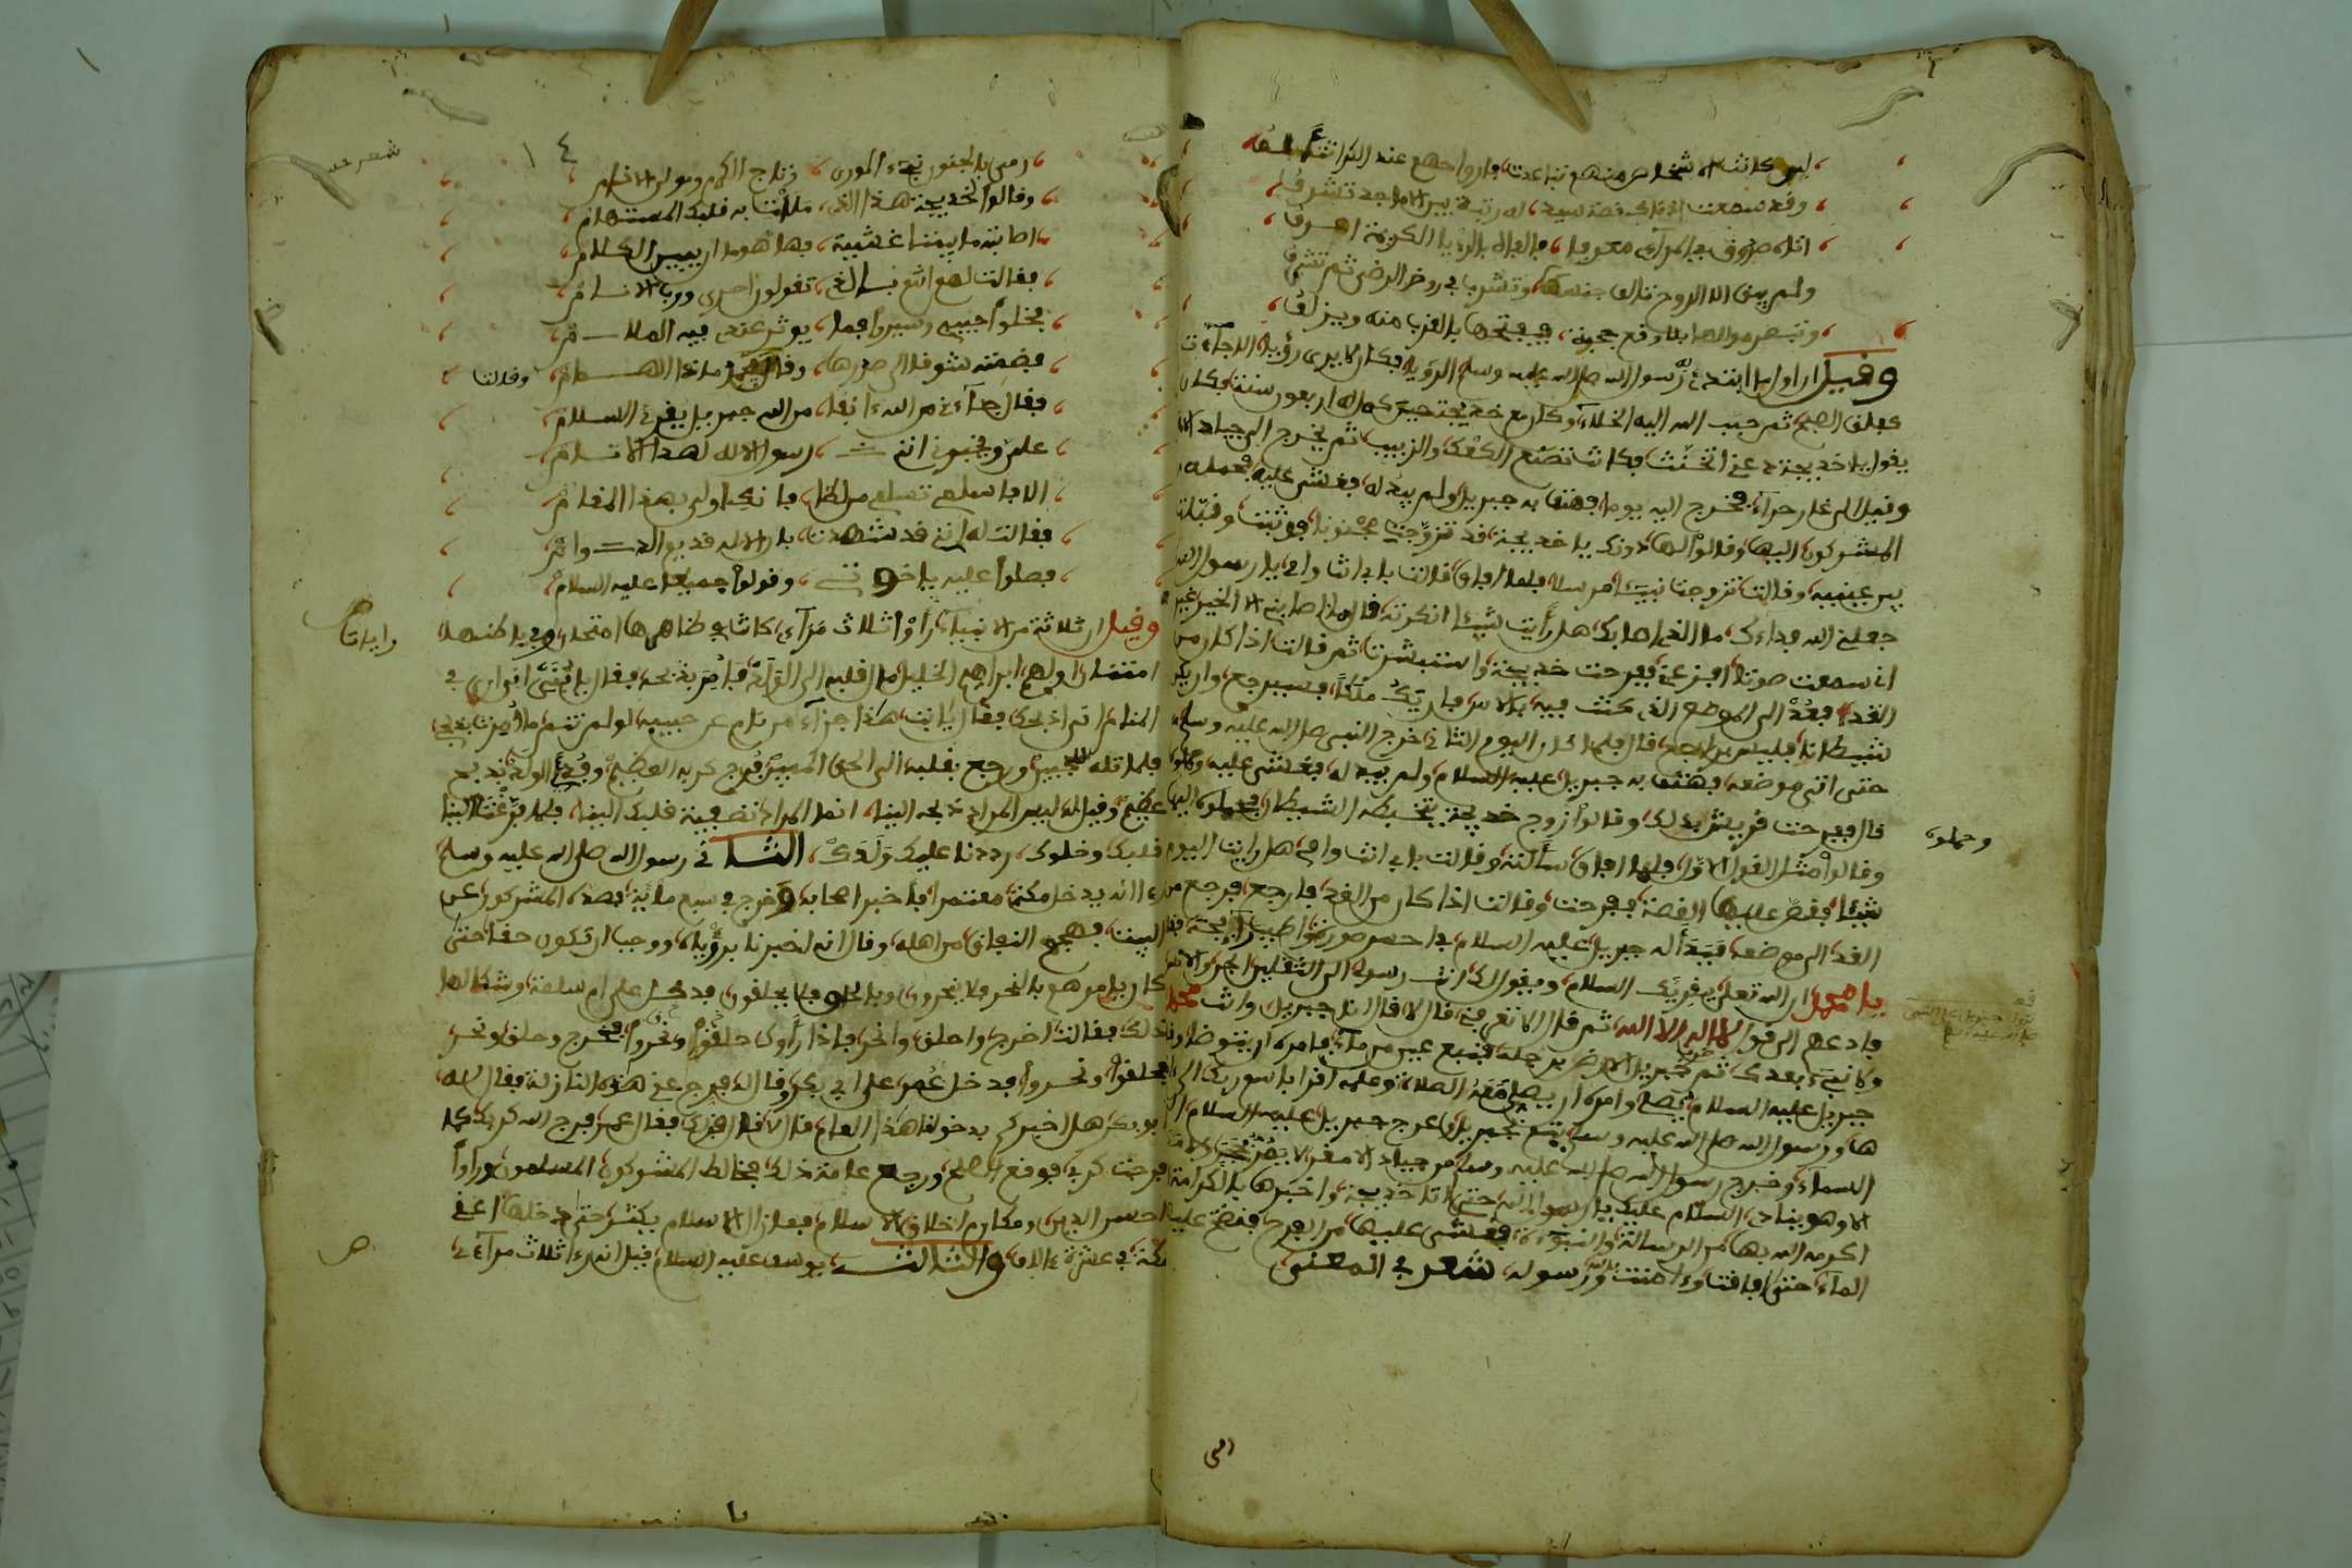 لين كانت الاشخاص منهم تباعدت فارواحهم عند الكرا تتألف
وقد سمعت اذناك قصة سيد له رتبة بين الاماجد تشرف
اتاه طروق في المرآى معرفا فالفاه بالرؤيا الكريمة اعرف
ولم يبق الا الروح تالف جنسها وتشرب في روض الرضى ثم تشرف
وتبصر مولاها بلا رفع حجبة فيفتحها بالقرب منه ويزلف
وقيل ان اول ما ابتدئ رسول الله صلى الله عليه وسلم الرؤية فكان لا يرى رؤيا الا جاءت
كفلق الصبح ثم حبب الله اليه الخلاء وكان مع خديجة حين كمل له اربعون سنة فكان
يقول يا خديجة دعني اتحنث فكانت تصنع الكعك والزبيب ثم يخرج الى جياد الا
وقيل الى غار حراء فخرج اليه يوما فهتف به جبريل ولم يبد له فغشي عليه فحمله
المشركون اليها وقالوا لها دونك يا خديجة قد تزوجت مجنونا فوثبت وقبلت
بين عينيه وقالت تزوجت نبيئا مرسلا فلما افاق قالت بابي انت وامي يا رسول الله
جعلني الله فداءك ما الذي اصابك هل رأيت شيئا انكرته قال ما اصابني الا الخير غير
اني سمعت صوتا افزعني ففرحت خديجة واستبشرت ثم قالت اذا كان من
الغد فعد الى الموضع الذي كنت فيه بالامس فان يك ملكا فسيرجع وان يك
شيطانا فليس براجع قال فلما كان اليوم الثاني خرج النبي صلى الله عليه وسلم
حتى اتى موضعه فهتف به جبريل عليه السلام ولم يبد له فغشي عليه
قال ففرحت قريش بذلك وقالوا زوج خديجة يتخبطه الشيطان فحملوه اليها
وحملوه
وقالوا مثل القول الاول فلما افاق سألته وقالت بابي انت وامي هل رايت اليوم
شيئا فقص عليها القصة ففرحت وقالت اذا كان من الغد فارجع فرجع من
الغد الى موضعه فبدأ له جبريل عليه السلام في احسن صورة واطيب رائحة
يا محمد ان الله تعلى يقريك السلام ويقول لك انت رسوله الى الثقلين الجن والانس
فادعهم الى قول لا اله الا الله ثم قال الا تعرفني قال لا قال انا جبريل وانت محمد
ولا نبيء بعدك ثم ضرب جبريل الارض برجله فنبع عين من ماء فامره ان يتوضا
جبريل عليه السلام يصلي وامره ان يصلي معه الصلاة وعلمه اقرا باسم ربك الى
ها ورسول الله صلى الله عليه وسلم يتبع جبريل وعرج جبريل عليه السلام الى
السماء وخرج رسول الله صلى الله عليه وسلم من جياد الاصغر لا يمر بحجر
الا وهو ينادي السلام عليك يا رسول الله حتى اتا خديجة واخبرها بالكرامة
اكرمه الله بها من الرسالة والنبوءة فغشي عليها من الفرح فنضح عليها
الماء حتى افاقت وءامنت بالله ورسوله شعر في المعنى
رمى بالجنون نبيء الورى وتاج الكرام ومولى الانام
وقالوا لخديجة هذا الذي ملات به قلبك المستهام
اصابته ما بيننا غشية فها هو ما ان يبين الكلام
فقالت لهم اتتم بالذي تقولون احرى ورب الانام
فخلوا حبيبي وسيروا فما يوثر عندي فيه الملام
فضمته شوقا الى صدرها وقال محمد ماذا الهيام
وقالت
فقال جاءني من الله ءانفا من الله جبريل يقرئ السلام
على ويخبرني انني رسول الاله لهذا الانام
الا فاسلمي تسلمي من لظى فانك اولى بهذا المقام
فقالت له انني قد شهدت بان الاله قديم الدوام
فصلوا عليه يا اخوتي وقولوا جميعا عليه السلام
وقيل ان ثلاثة من الانبياء رأوا ثلاث مرآي كانت في ظاهرها امتحان وفي باطنها
امتنان اولهم ابراهيم الخليل مال قلبه الى الولد فامر بذبحه فقال يا بني اني ارى في
المنام اني اذبحك فقال يا ابت هذا جزاء من نام عن حبيبه لو لم تنم ما امرت بذبحي
فلما تله للجبين ورجع بقلبه الى الحق المبين فرج كربه العظيم وفدي الولد بذبح
عظيم وقيل له ليس المراد ذبحه الينا انما المراد تصفية قلبك الينا فلما فرغت لنا
قلبك وخلوك رددنا عليك ولدك الثاني رسول الله صلى الله عليه وسلم
رءا انه يدخل مكة معتمرا فاخبر اصحابه وخرج في سبع مائة فصده المشركون عن
البيت فهجم النفاق من اهله وقال انه اخبرنا برؤياه ووجب ان تكون حقا حتى
كان يامرهم بالنحر فلا ينحرون وبالحلق فلا يحلقون فدخل على ام سلمة وشكا لها
ذلك فقالت اخرج واحلق وانحر فاذا رأوك حلقوا ونحروا فخرج وحلق ونحر
فحلقوا ونحروا فدخل عمر على ابي بكر وقال له فرج عني هذه النازلة فقال له
ابو بكر هل اخبركم بدخولها هذا العام قال لا قال افزك فقال عمر فرج الله كربك كما
فرجت كربي فوقع الصلح ورجع عامة ذلك فخالط المشركون المسلمون ورأوا
احسن الدين ومكارم اخلاق الاسلام فما زال الاسلام يكثر حتى دخلها اعني
مكة في عشرة ءالاف والثالث يوسف عليه السلام قيل انه رءا ثلاث مرآءي